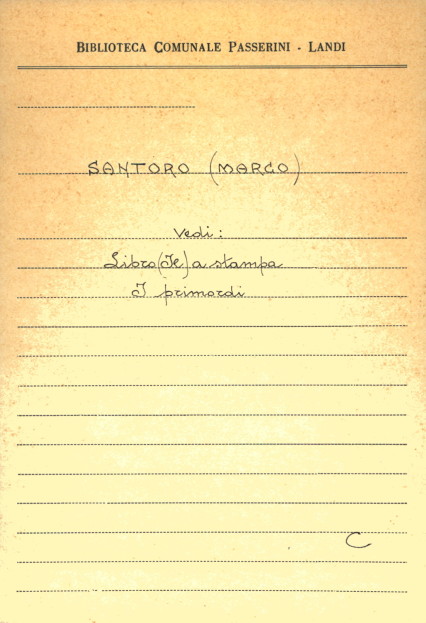 BIBLIOTECA COMUNALE PASSERINI - LANDI
SANTORO (MARCO)
Vedi:
Libro (Il) a stampa
I primordi
C